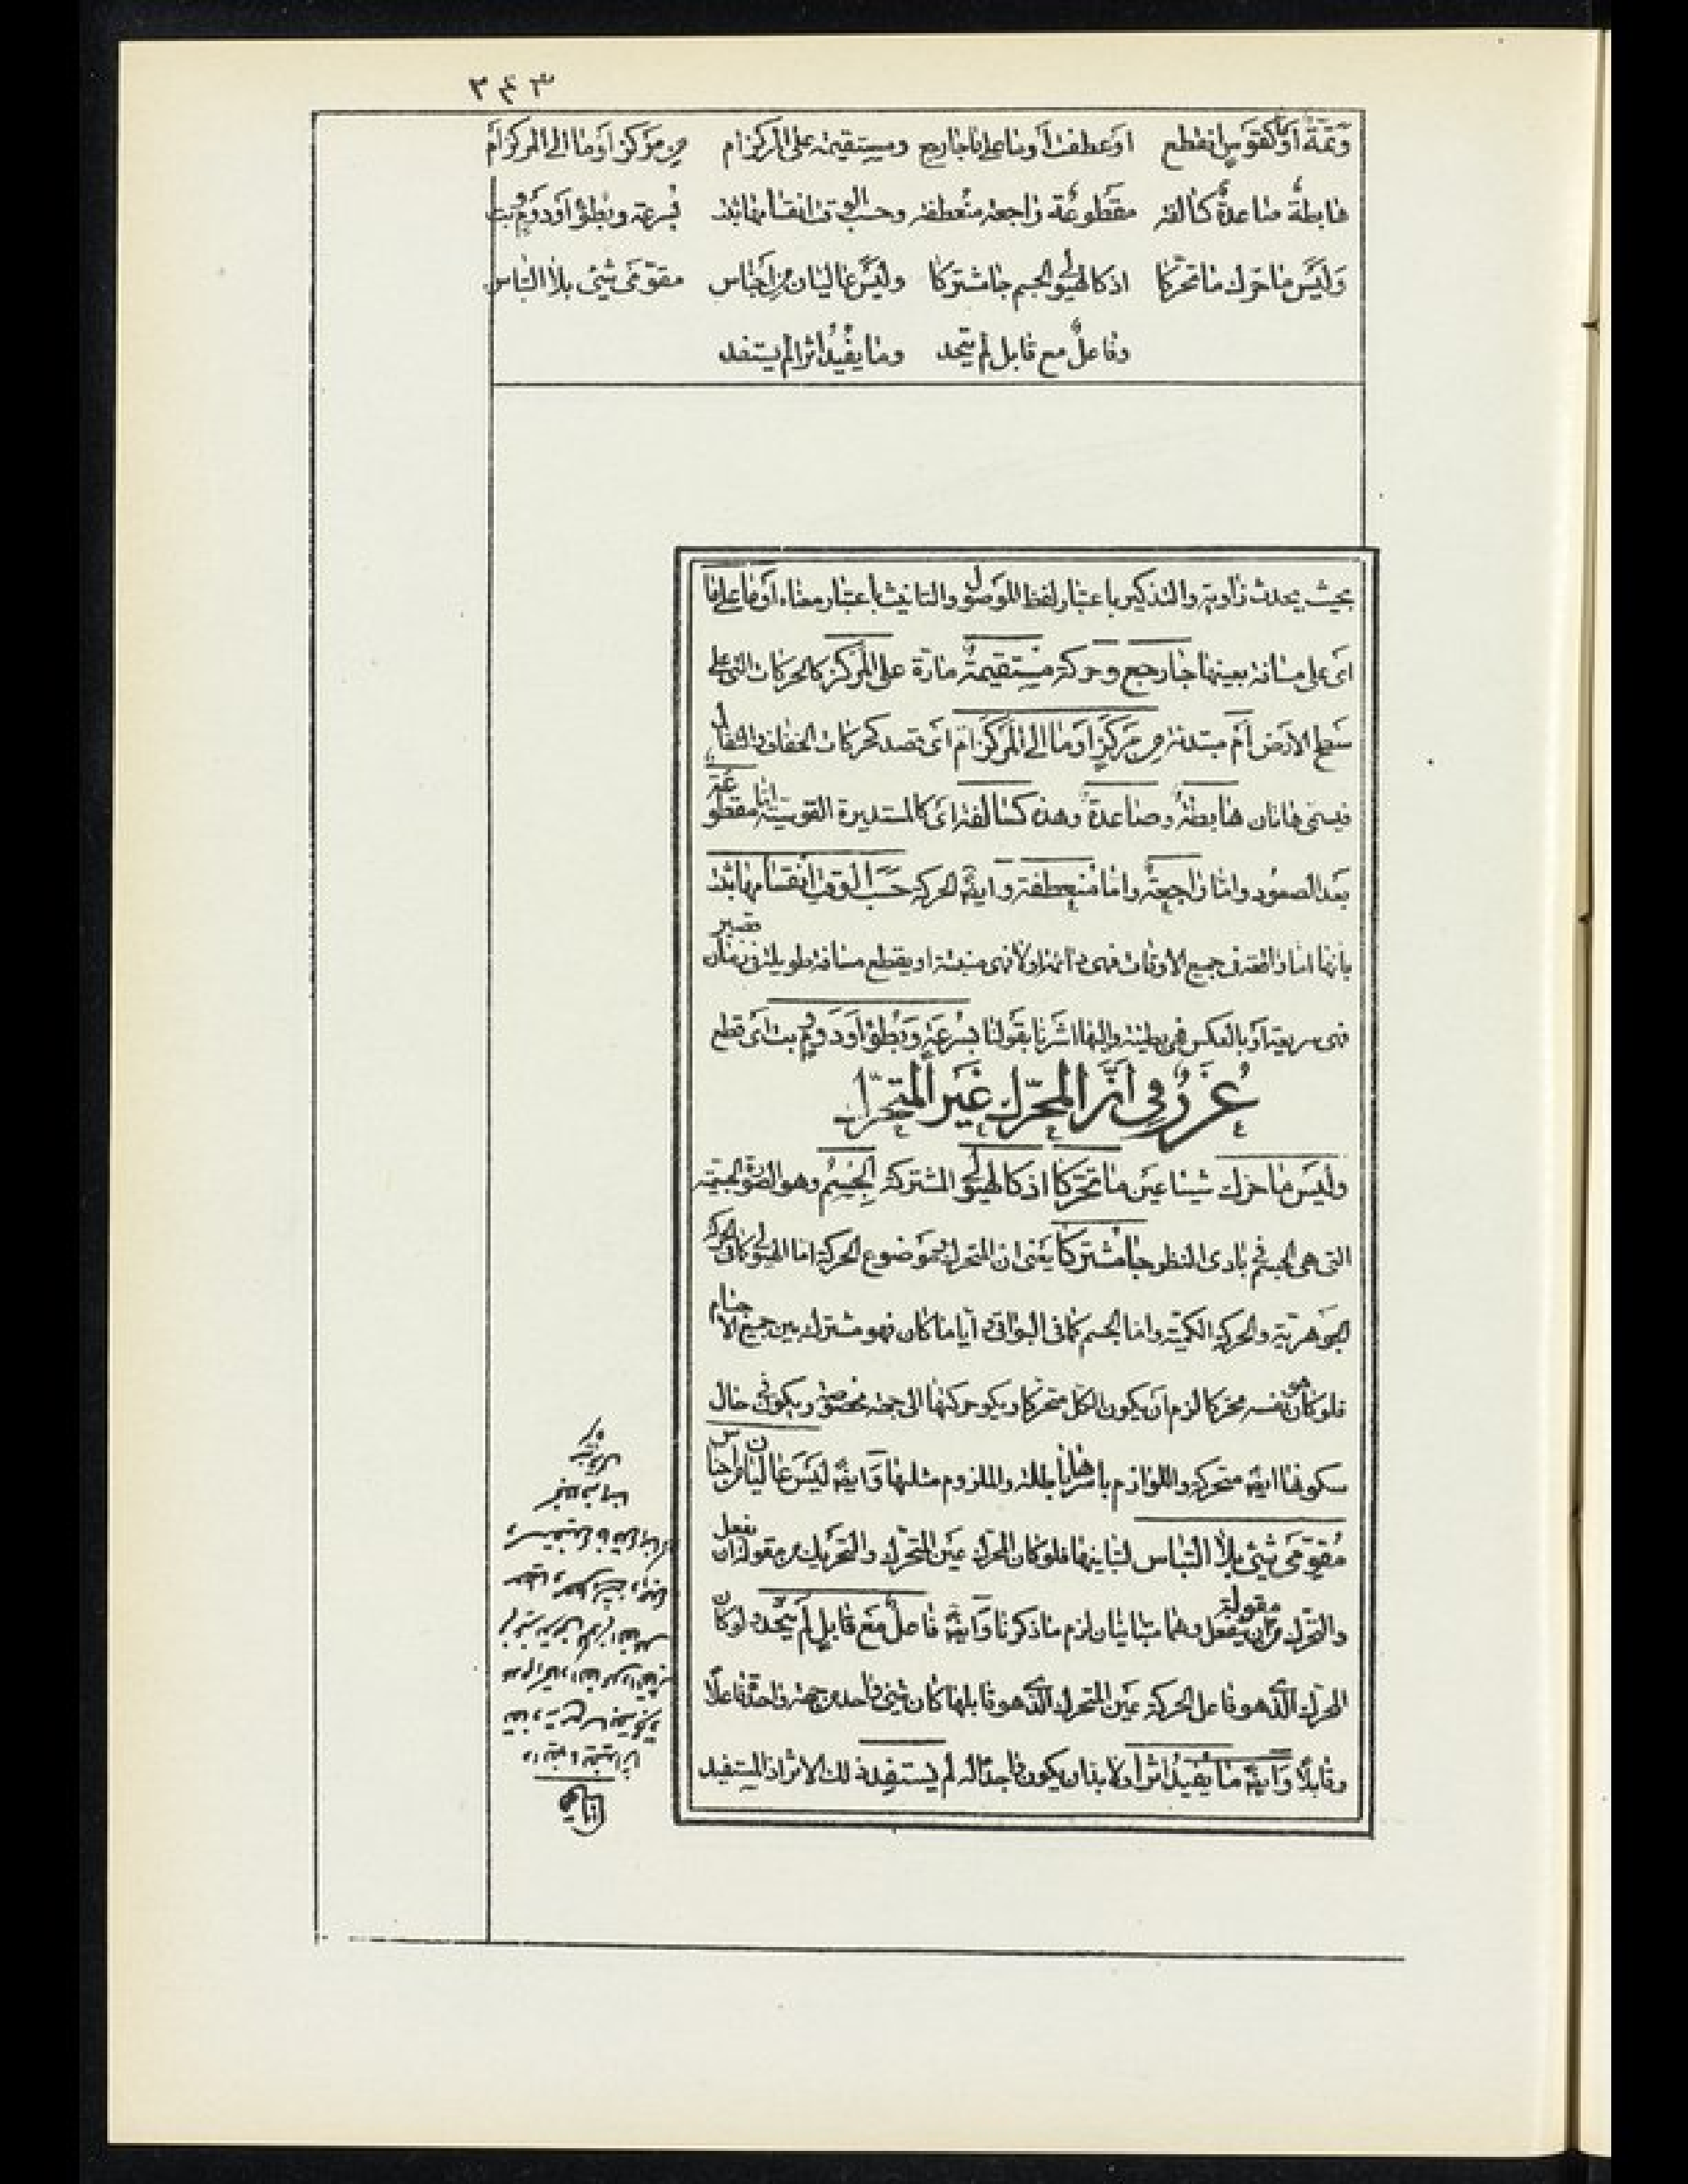 ٣٤٣
وتمّة أو كقوس انقطع او عطفت أو ما على ما جا رجع ومستقيمة على المركز ام من مركز أو ما الى المركز أم
هابطة صاعدة كسالفة مقطوعة راجعة منعطفة وحسب الوقت انقسامها ثبت بسرعة وبطؤ أو دووم بت
وليس ما حرك ما تحركا اذ كالهيولى الجسم جا مشتركا وليس عاليان من اجناس مقومي شيئ بلا التباس
وفاعل مع قابل لم يتحد وما يفيد اثرا لم يستفد
بحيث يحدث زاوية والتذكير باعتبار لفظ الموصول والتانيث باعتبار معناه أو ما على ما
اى على مسافة بعينها جا رجع وحركة مستقيمة مارّة على المركز كالحركات التى على
سطح الارض أم مبتدئة من مركز أو ما الى المركز ام اى قصد كحركات الخفاف والثقال
فيسمى هاتان هابطة وصاعدة وهذه كسالفة اى كالمستديرة القوسية اما مقطوعة
بعد الصعود واما راجعة واما منعطفة وايضا الحركة حسب الوقت انقسامها ثبت
بانها اما واقعة فى جميع الاوقات فهى دائمة اولا فهى منبتة او يقطع مسافة طويلة فى زمان قصير
فهى سريعة أو بالعكس فهى بطيئة واليها اشرنا بقولنا بسرعة وبطؤ أو دووم بت اى قطع
غرر فى أنّ المحرّك غير المتحرّك
وليس ما حرك شيئا عين ما تحركا اذ كالهيولى المشتركة الجسم وهو الصورة الجسمية
التى هى الجسم فى بادى النظر جا مشتركا يعنى ان المتحرك موضوع الحركة اما الهيولى كما فى الحركة
الجوهرية والحركة الكمية واما الجسم كما فى البواقى وايا ما كان فهو مشترك بين جميع الاجسام
فلو كان هو نفسه محركا لزم أن يكون الكل متحركا ويكون حركتها الى جهة مخصوصة ويكون فى حال
سكونها ايضا متحركة واللوازم باسرها باطلة والملزوم مثلها وايضا ليس عاليان من اجناس
مقومي شيئ بلا التباس لتباينها فلو كان المحرك عين المتحرك والتحريك من مقولة ان يفعل
والتحرك من مقولة ان ينفعل وهما متباينان لزم ما ذكرنا وايضا فاعل مع قابل لم يتحد ولو كان
المحرك الذى هو فاعل الحركة عين المتحرك الذى هو قابلها كان شيئ واحد من جهة واحدة فاعلا
وقابلا وايضا ما يفيد اثرا ولا بد ان يكون واجدا له لم يستفد ذلك الاثر اذ المستفيد